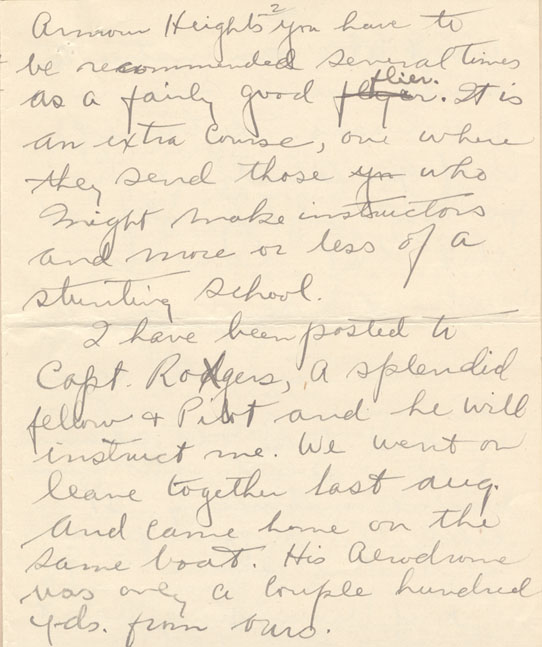 Armour Heights 2 you have to
be recommended several times
as a fairly good flyer. flier. It is
an extra course, one where
they send those yu who
might make instructors
and more or less of a
stunting school.
I have been posted to
Capt. Rodgers, a splendid
fellow & Pilot and he will
instruct me. We went on
leave together last aug.
and came home on the
same boat. His Aerodrome
was only a couple hundred
yds. from ours.